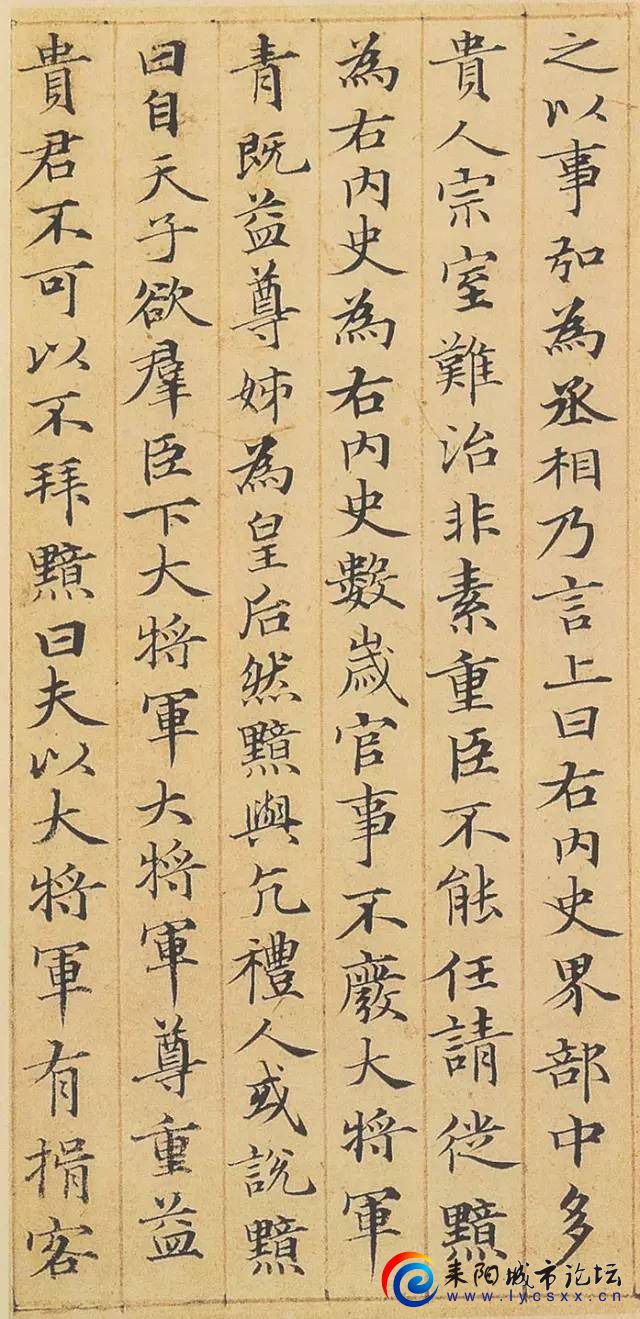 之以事弘為丞相乃言上曰右内史界部中多
貴人宗室難治非素重臣不能任請徙黯
為右内史為右内史數歲官事不廢大將軍
青既益尊姊為皇后然黯與亢禮人或說黯
曰自天子欲羣臣下大將軍大將軍尊重益
貴君不可以不拜黯曰夫以大將軍有揖客
耒阳城市论坛
www.lycsxx.cn